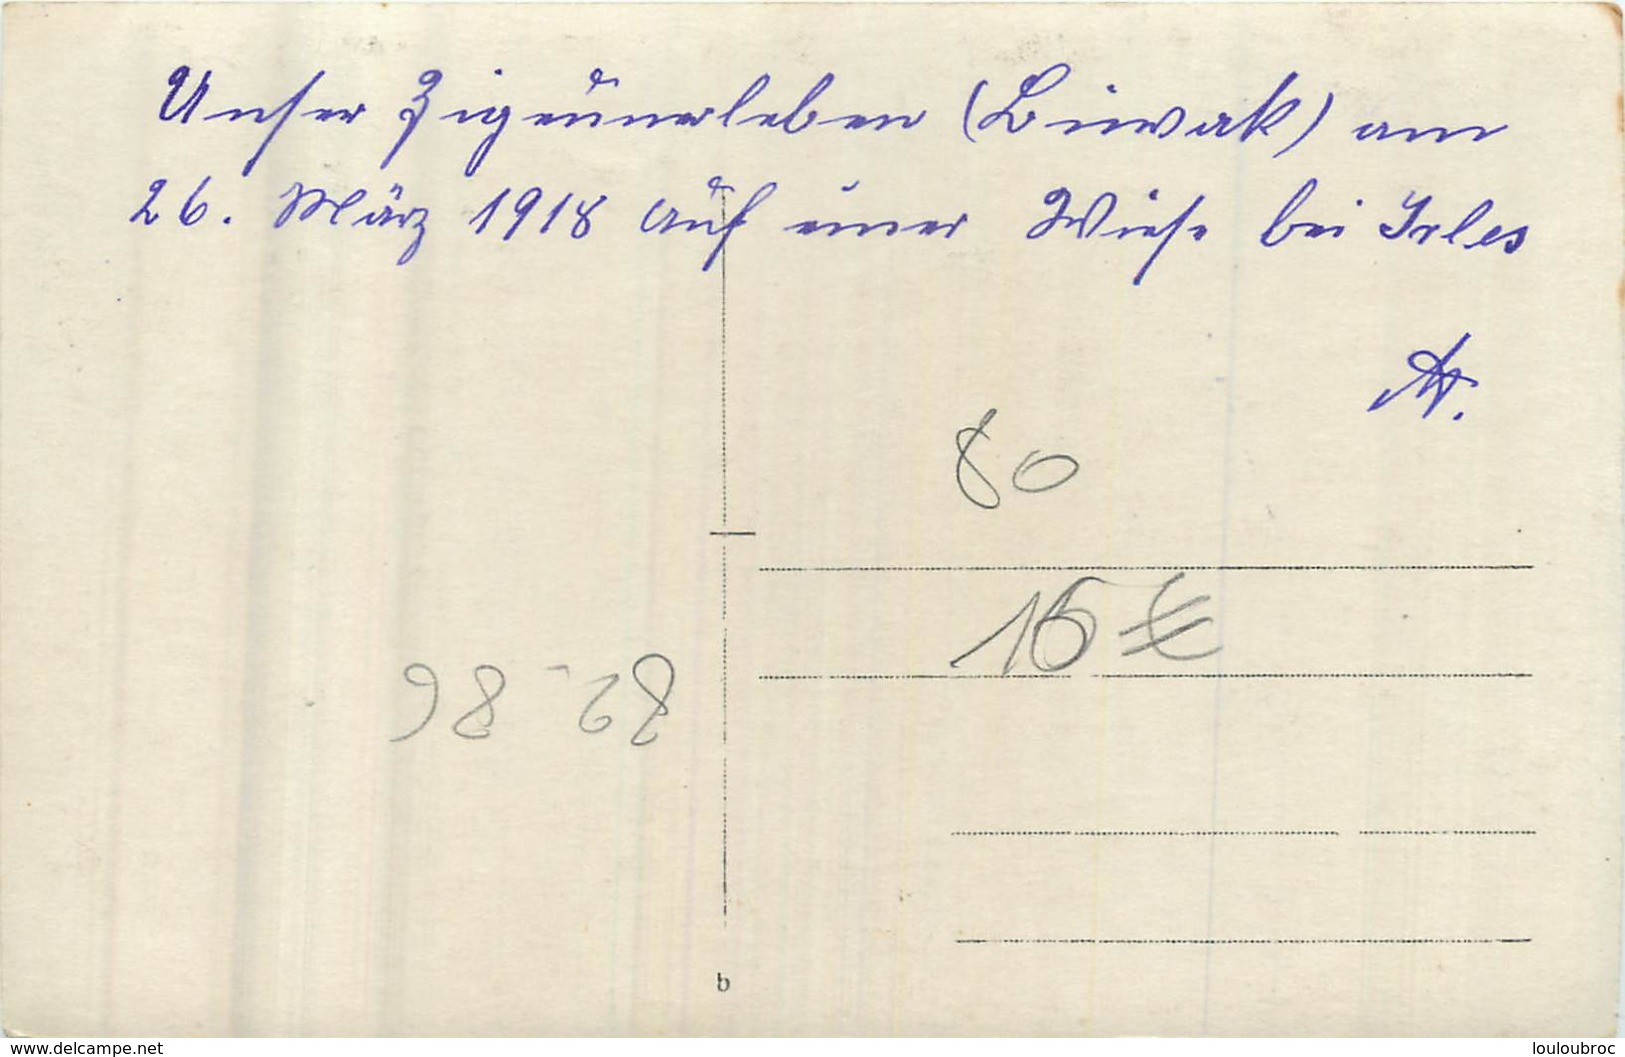 Unser Zigeunerleben (Biwak) am
26. März 1918 auf einer Wiese bei Irles
A.
80
16 €
82-86
b
www.delcampe.net
louloubroc